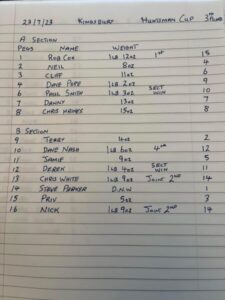 23/7/23 KINGSBURY HUNTSMAN CUP 3RD ROUND
A SECTION
PEGS NAME WEIGHT
1 ROB COX 1LB 12oz 1ST 15
2 NEIL 8oz 4
3 CLIFF 11oz 6
4 DAVE POPE 1LB 2oz 9
6 PAUL SMITH 1LB 3oz SECT WIN 10
7 DANNY 13oz 7
8 CHRIS HAINES 15oz 8
B SECTION
9 TERRY 4oz 2
10 DAVE NASH 1LB 6oz 4TH 12
11 JAMIE 9oz 5
12 DEREK 1LB 4oz SECT WIN 11
13 CHRIS WHITE 1LB 9oz JOINT 2ND 14
14 STEVE PARKER D.N.W 1
15 PRIV 5oz 3
16 NICK 1LB 9oz JOINT 2ND 14